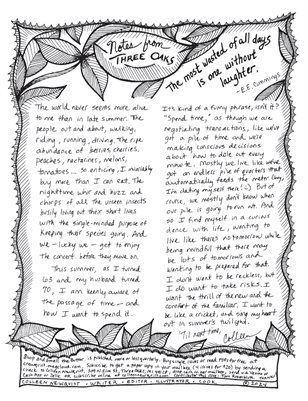 Notes from
THREE OAKS
The most wasted of all days
is one without
laughter.
- E.E. Cummings
The world never seems more alive
to me than in late summer. The
people out and about, walking,
riding, running, driving. The ripe
abundance of berries, cherries,
peaches, nectarines, melons,
tomatoes... so enticing, I invariably
buy more than I can eat. The
nighttime whir and buzz and
chirps of all the unseen insects
busily living out their short lives
with the single-minded purpose of
keeping their species going. And
we — lucky we — get to enjoy
the concert before they move on.
Thus summer, as I turned
63 and my husband turned
70, I am keenly aware of
the passage of time — and
how I want to spend it.
It's kind of a funny phrase, isn't it?
"Spend time," as though we are
negotiating transactions, like we've
got a pile of time and we're
making conscious decisions
about how to dole out every
minute. Mostly we live like we've
got an endless pile of quarters that
automatically feeds the meter (hey,
I'm dating myself here! :-) But of
course, we mostly don't know when
our pile is going to run out. And
so I find myself in a curious
dance with life, wanting to
live like there's no tomorrow while
being mindful that there may
be lots of tomorrows and
wanting to be prepared for that.
I don't want to be reckless, but
I do want to take risks. I
want the thrill of the new and the
comfort of the familiar. I want to
be like a cricket, and sing my heart
out in summer's twilight.
'Til next time, Colleen
COLLEEN NEWQUIST · WRITER · EDITOR · ILLUSTRATOR · COOK
© 2024